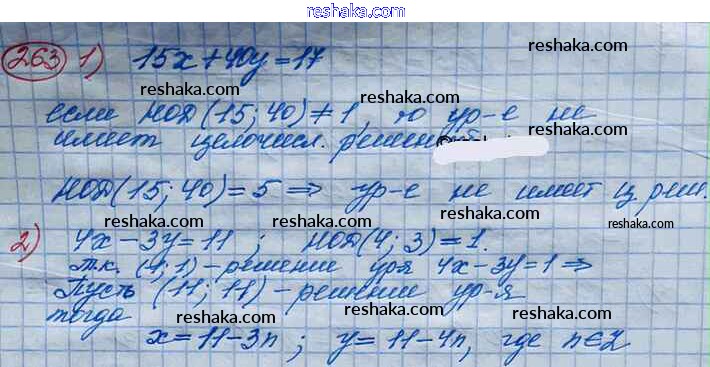 reshaka.com
263 1) 15x+40y=17 reshaka.com
reshaka.com reshaka.com
если НОД(15; 40) ≠ 1, то ур-е не
имеет целочисл. решений reshaka.com
reshaka.com
НОД(15; 40) = 5 ⇒ ур-е не имеет ц. реш.
reshaka.com reshaka.com
2) 4x - 3y = 11 ; НОД(4; 3) = 1.
т.к. (1; 1) - решение ур-я 4x - 3y = 1 ⇒
reshaka.com reshaka.com
Пусть (11; 11) - решение ур-я
тогда reshaka.com
x = 11 - 3n ; y = 11 - 4n, где n∈Z
reshaka.com reshaka.com